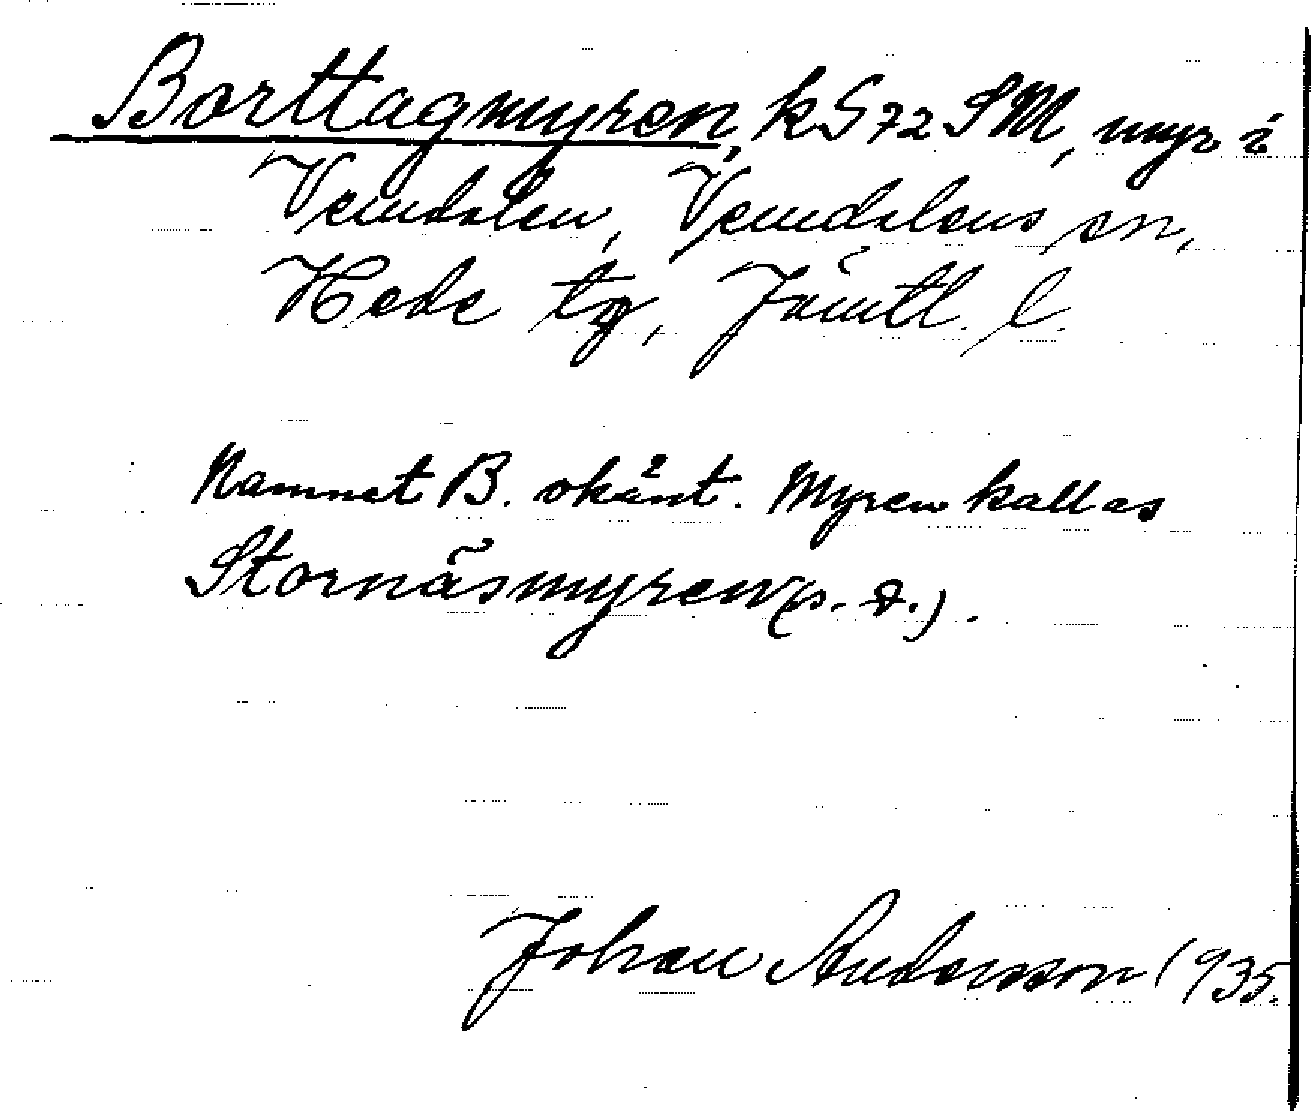 Borttagmyren, kS72SM, myr i
Vemdalen, Vemdalens sn,
Hede tg, Jämtl. l.
Namnet B. okänt. Myren kallas
Stornäsmyren (s. d.).
Johan Andersson 1935.